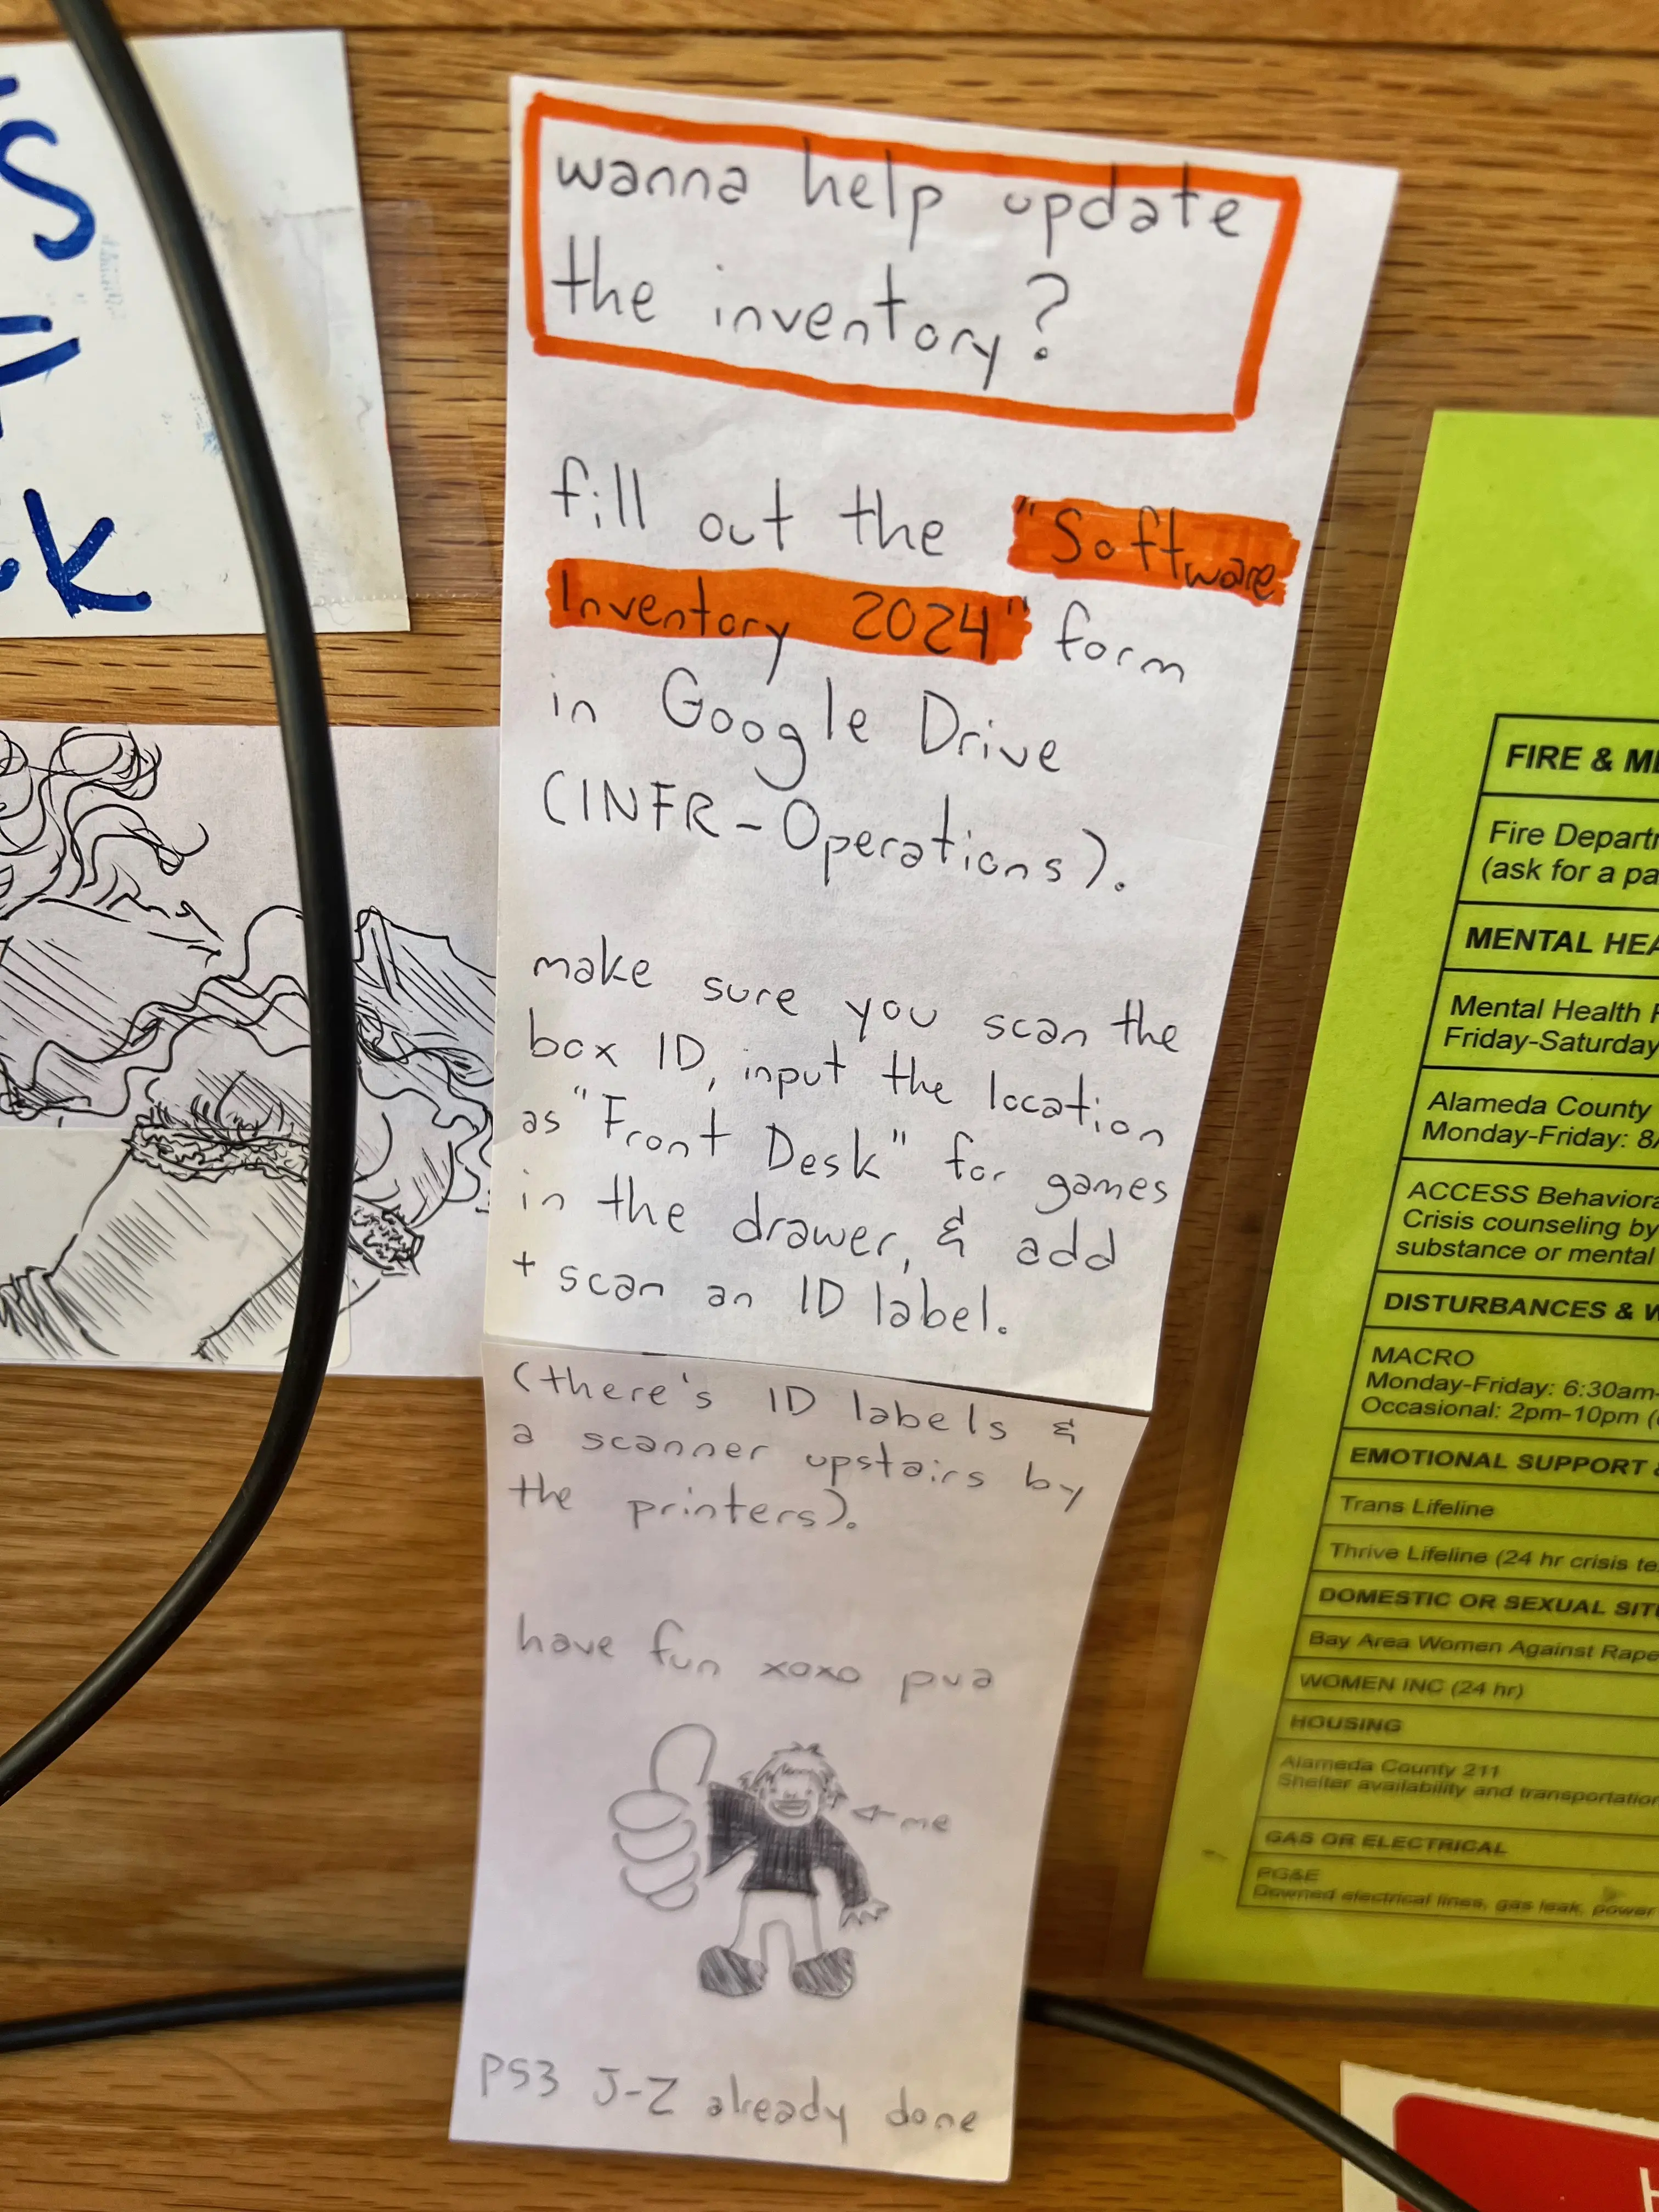 wanna help update
the inventory?
fill out the "Software
Inventory 2024" form
in Google Drive
(INFR-Operations).
make sure you scan the
box ID, input the location
as "Front Desk" for games
in the drawer, & add
+ scan an ID label.
(there's ID labels &
a scanner upstairs by
the printers).
have fun xoxo pua
me
PS3 J-Z already done
FIRE &
Fire
(ask for a
MENTAL
Mental Health
Friday-Saturday
Alameda County
Monday-Friday:
ACCESS
Crisis counseling by
substance or mental
DISTURBANCES &
MACRO
Monday-Friday: 6:30am-
Occasional: 2pm-10pm
EMOTIONAL SUPPORT
Trans Lifeline
Thrive Lifeline (24 hr crisis
DOMESTIC OR SEXUAL
Bay Area Women Against Rape
WOMEN INC (24 hr)
HOUSING
Alameda County 211
Shelter availability and transportation
GAS OR ELECTRICAL
PG&E
Downed electrical lines, gas leak, power